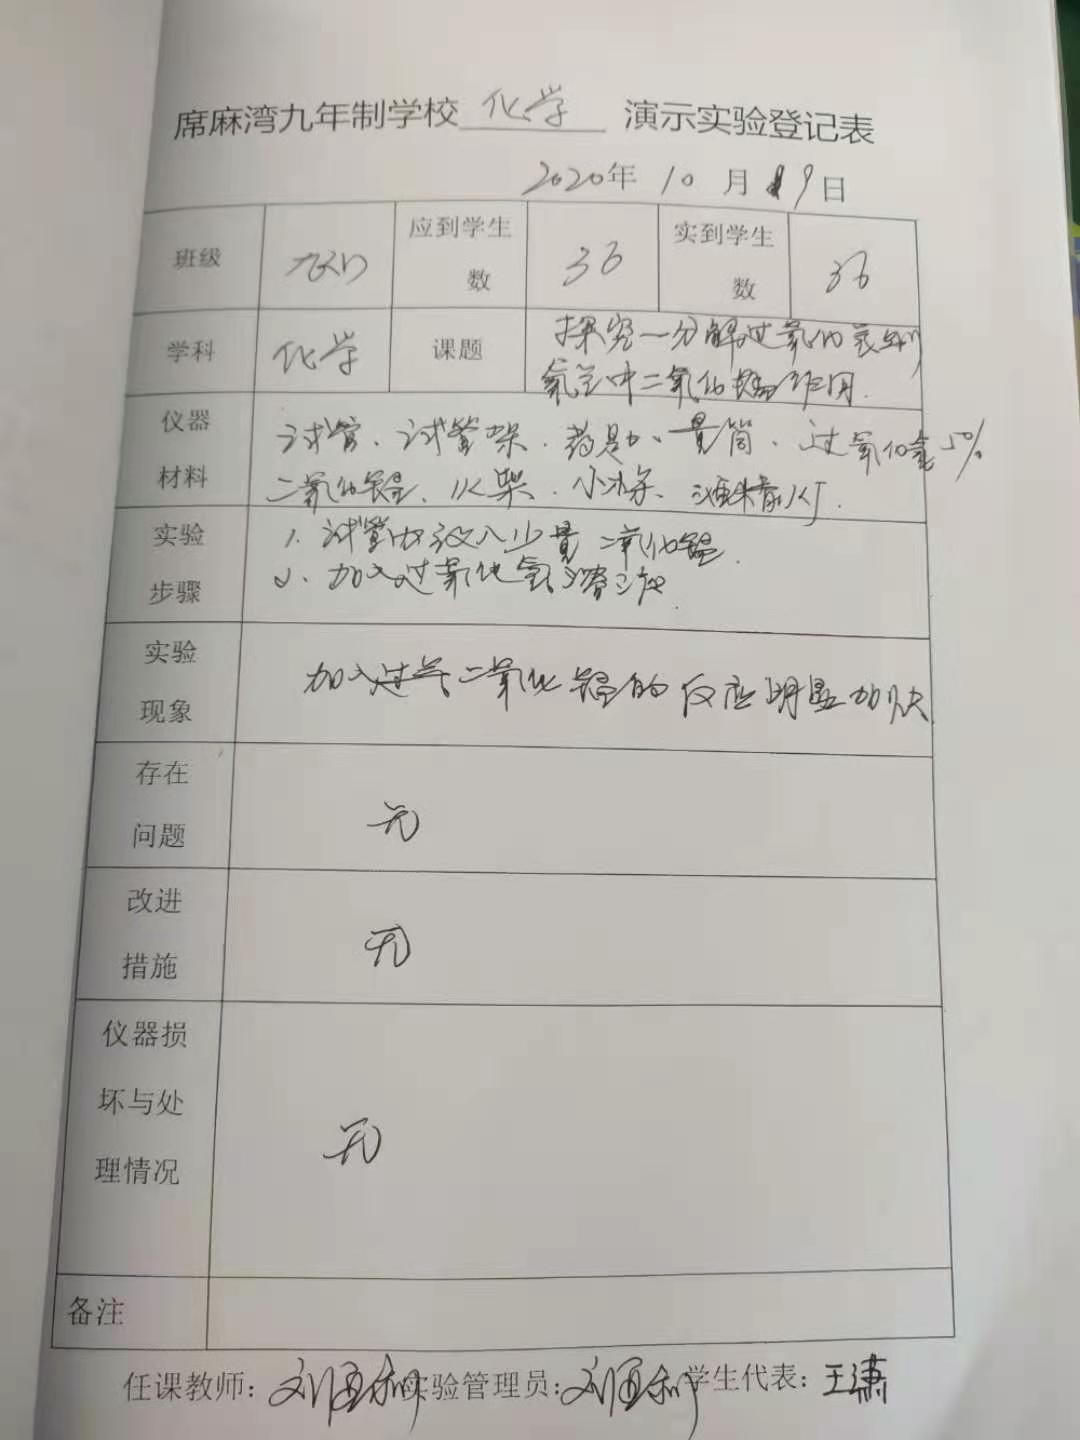 席麻湾九年制学校 化学 演示实验登记表
2020年 10 月 19日
班级 九(1) 应到学生数 36 实到学生数 36
学科 化学 课题 探究一分解过氧化氢制
氧气中二氧化锰作用.
仪器材料 试管、试管架.药匙、量筒、过氧化氢5%
二氧化锰、火柴.小木条、酒精灯.
实验步骤 1.试管内放入少量二氧化锰.
2.加入过氧化氢溶液.
实验现象 加入二氧化锰的反应明显加快
存在问题 无
改进措施 无
仪器损坏与处理情况 无
备注
任课教师: 实验管理员: 学生代表:王潇